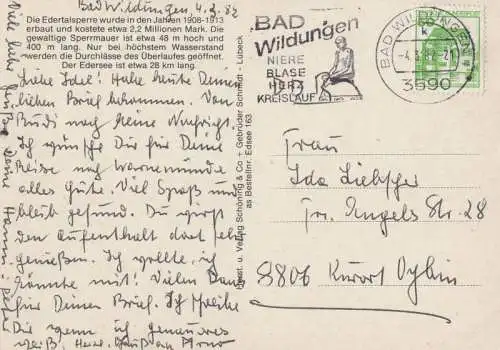 Bad Wildungen, 4.3.82
Die Edertalsperre wurde in den Jahren 1908-1913
erbaut und kostete 2,2 Millionen Mark. Die
gewaltige Sperrmauer ist etwa 48 m hoch und
400 m lang. Nur bei höchstem Wasserstand
werden die Durchlässe des Überlaufes geöffnet.
Der Edersee ist etwa 28 km lang.
Liebe Ida! Habe heute Deinen
lieben Brief bekommen. Von
Rudi noch keine Nachricht.
Ich wünsche Dir für Deine
Reise nach Warnemünde
alles Gute. Viel Spaß und
bleib gesund. Du wirst
den Aufenthalt dort sehr
genießen. Ich wollte, ich
könnte mit! Vielen Dank
für Deinen Brief. Ich schreibe
Dir wenn ich genaueres
weiß. Herzl. Gruß an Arno
Viele liebe Grüße Deine Hanni
Herst. u. Verlag Schöning & Co + Gebrüder Schmidt - Lübeck
as Bestellnr. Edsee 163
BAD
Wildungen
NIERE
BLASE
HERZ
KREISLAUF
BAD WILDUNGEN 1
-4.3.82-21
3590
Frau
Ida Liebscher
Fr. Engels Str. 28
8806 Kurort Oybin